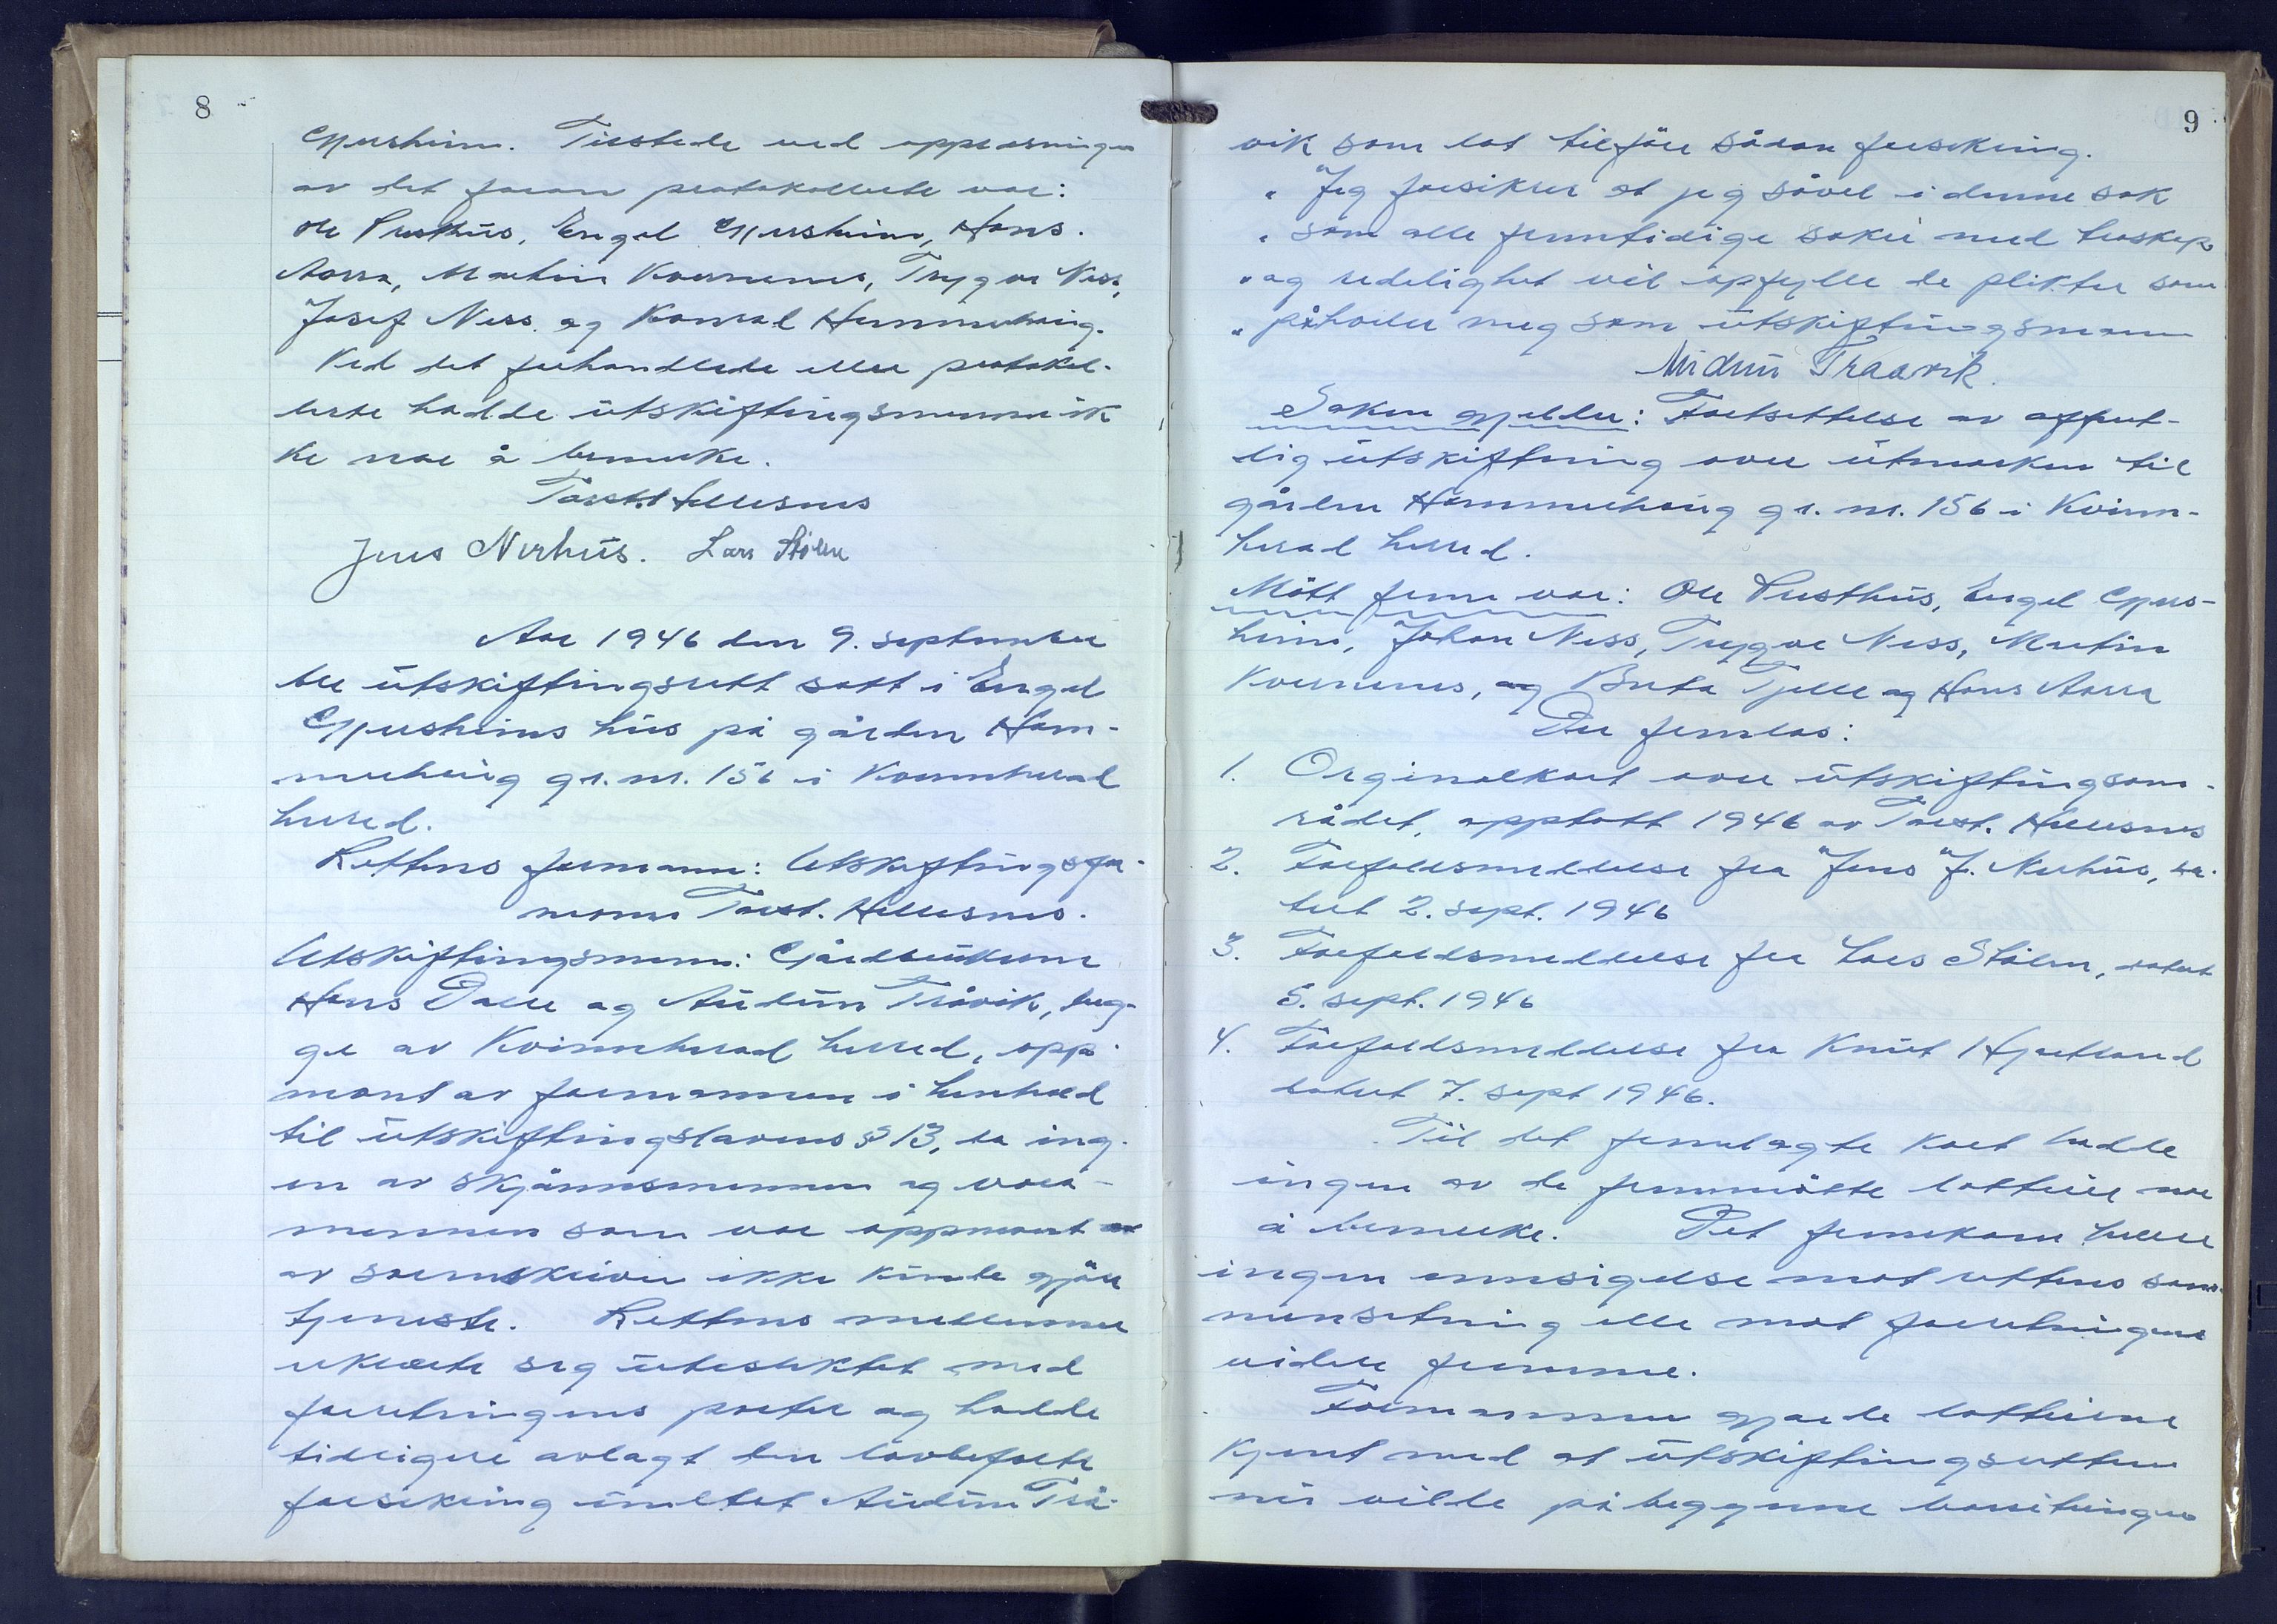 8
Gjersheim. Tilstede ved opplesningen
av det foran protokollerte var:
Ole Presthus, Engel Gjersheim, Hans
Aarra, Martin Kvernenes, Trygve Ness,
Josef Ness og Konrad Hammerhaug.
Ved det forhandlede eller protokol-
lerte hadde utskiftingsmennene ik
ke noe å bemerke.
Torst. Hellesnes
Jens Nerhus. Lars Stölen
Aar 1946 den 9. september
ble utskiftingsrett satt i Engel
Gjersheims hus på gården Ham-
merhaug gr. nr. 156 i Kvinnherad
herred.
Rettens formann: Utskiftingsfor-
mann Torst. Hellesnes.
Utskiftingsmenn: Gårdbrukerne
Hans Dale og Audun Tråvik, beg-
ge av Kvinnherad herred, opp-
nevnt av formannen i henhold
til utskiftingslovens § 13, da ing-
en av skjönnsmennene og vara-
mennene som var oppnevnt
av sorenskriver ikke kunde gjöre
tjeneste. Rettens medlemmer
erklærte seg ubeslektet med
forretningens parter og hadde
tidligere avlagt den lovbefalte
forsikring unntatt Audun Trå-
9
vik som lot tilföre sådan forsikring.
" "Jeg forsikrer at jeg såvel i denne sak
" som alle fremtidige saker med troskap
" og redelighet vil opfylle de plikter som
" påhviler meg som utskiftingsmann
Audun Traavik.
Saken gjelder: Fortsettelse av offent-
lig utskiftning over utmarken til
gården Hammerhaug gr. nr. 156 i Kvinn-
herad herred.
Mött frem var: Ole Presthus, Engel Gjers-
heim, Johan Ness, Trygve Ness, Martin
Kvernenes, og Berta Tjelle og Hans Aarra
Der fremlas:
1. Orginalkart over utskiftingsom-
rådet, opptatt 1946 av Torst. Hellesnes
2. Forfallsmeldelse fra Jens J. Nerhus, da-
tert 2. sept. 1946
3. Forfaldsmeldelse fra Lars Stölen, datert
5. sept. 1946
4. Forfaldsmeldelse fra Knut Hjetland
datert 7. sept 1946.
Til det fremlagte kart hadde
ingen av de fremmötte lotteiere noe
å bemerke. Det fremkom heller
ingen innsigelse mot rettens sam-
mensetning eller mot forretningens
videre fremme.
Formannen gjorde lotteierne
kjent med at utskiftingsretten
nu vilde påbegynne boniteringen